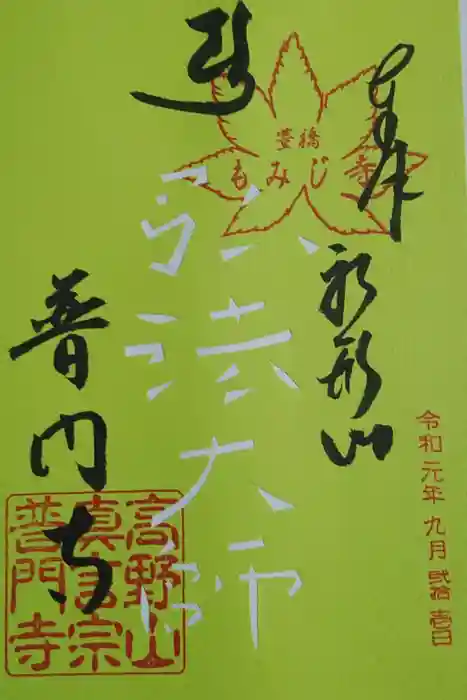 奉拝
豊橋
もみじ寺
船形山
弘法大師
普門寺
令和元年九月弐拾壱日
高野山
真言宗
普門寺